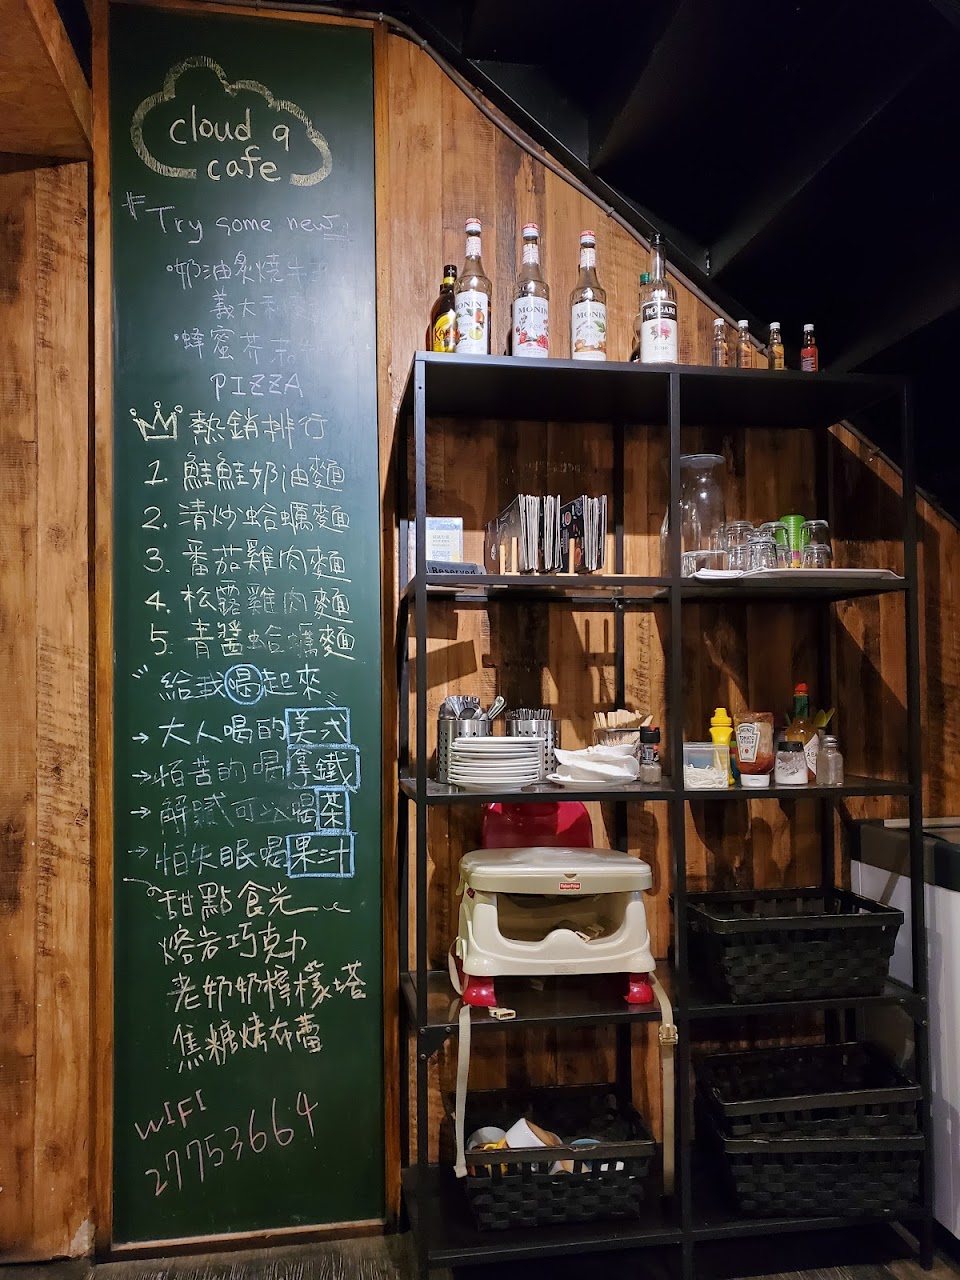 cloud 9
cafe
Try some new
奶油炙燒牛
義大利
蜂蜜芥末
PIZZA
熱銷排行
1. 鮭鮭奶油麵
2. 清炒蛤蠣麵
3. 番茄雞肉麵
4. 松露雞肉麵
5. 青醬蛤蠣麵
給我喝起來
→ 大人喝的美式
→ 怕苦的喝拿鐵
→ 解膩可以喝茶
→ 怕失眠喝果汁
甜點食光
熔岩巧克力
老奶奶檸檬塔
焦糖烤布蕾
WIFI
27753664
MONIN
MONIN
MONIN
BOGART
Reserved
HEINZ
TOMATO
KETCHUP
Fisher-Price